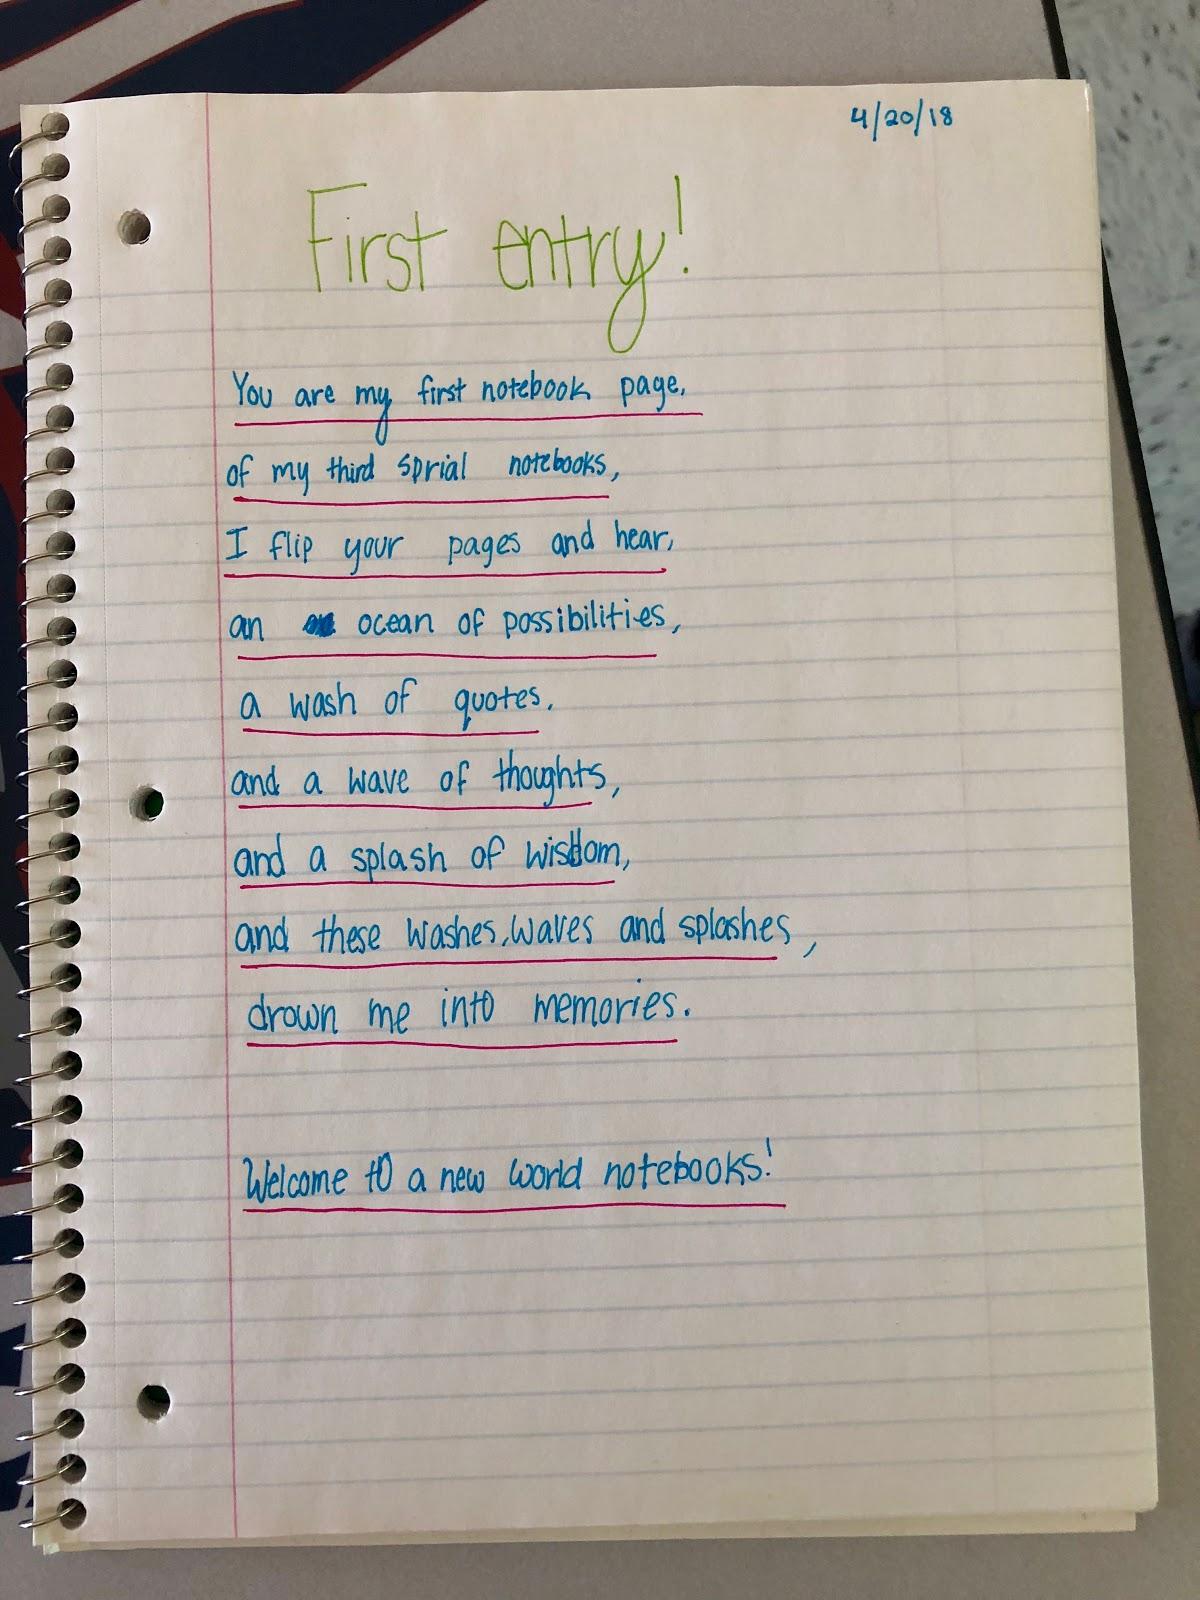 4/20/18
First entry!
You are my first notebook page,
of my third sprial notebooks,
I flip your pages and hear,
an ocean of possibilities,
a wash of quotes,
and a wave of thoughts,
and a splash of wisdom,
and these washes, waves and splashes,
drown me into memories.
Welcome to a new world notebooks!